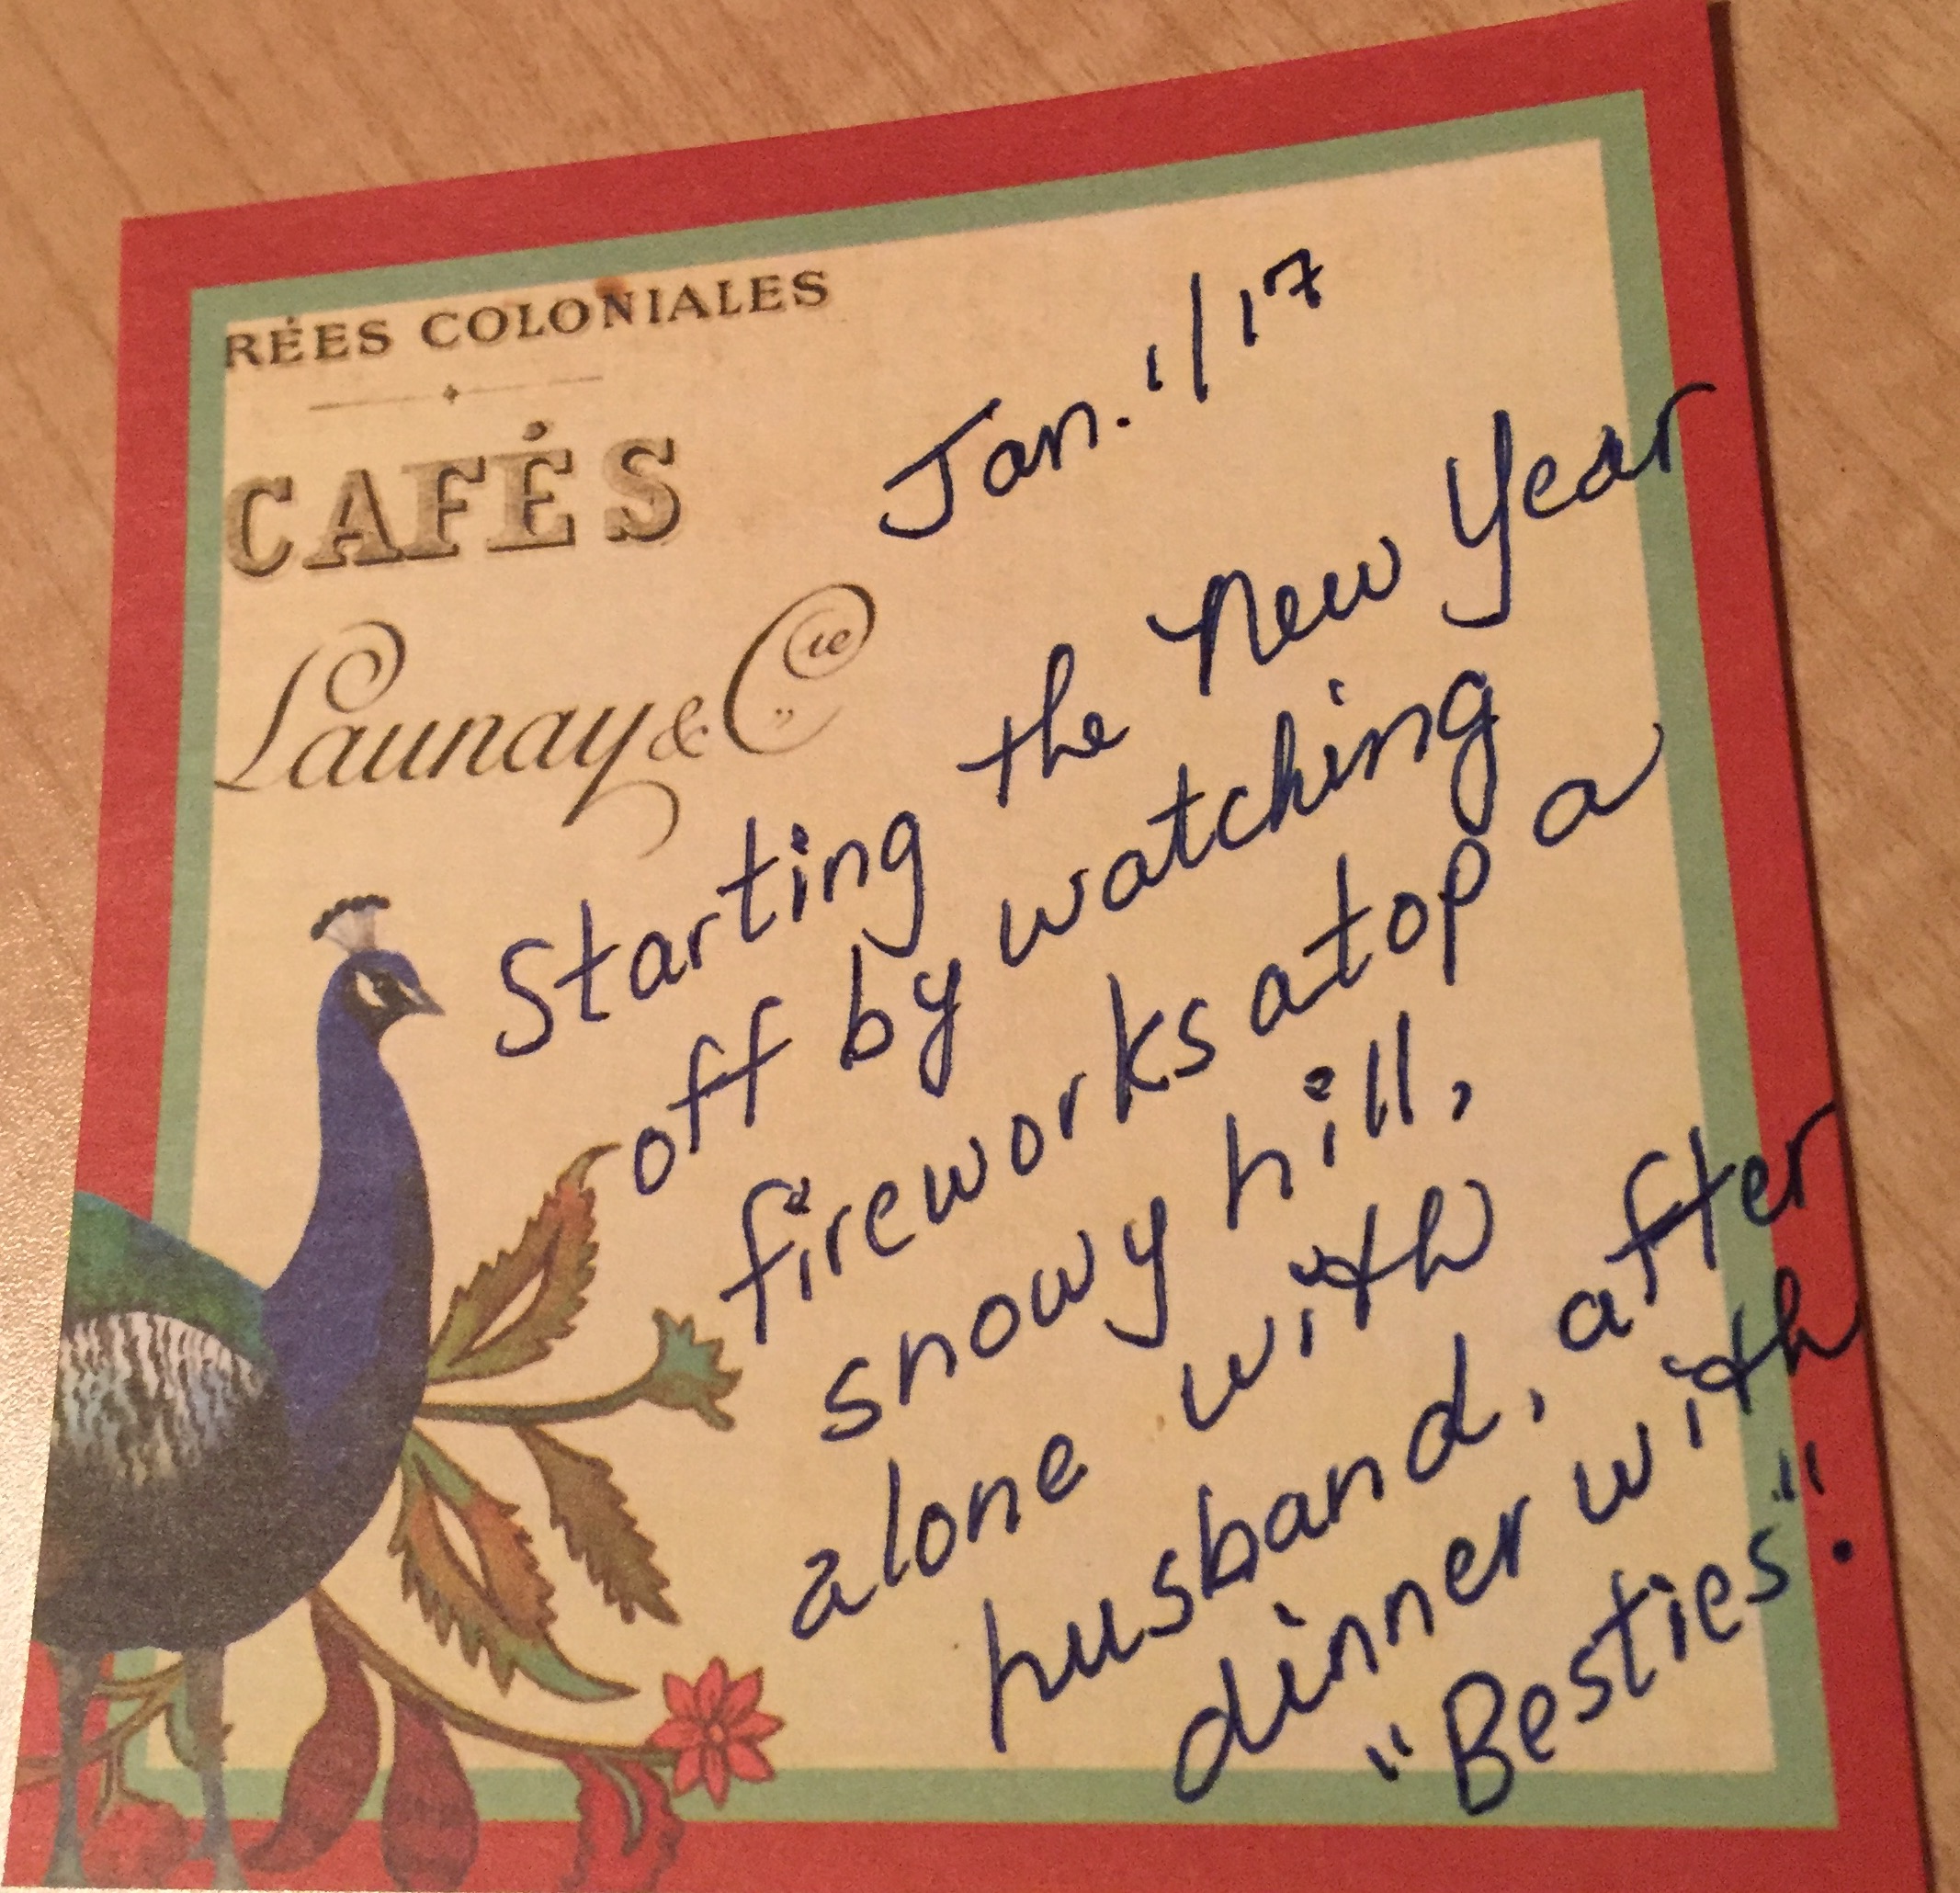 RÉES COLONIALES
CAFÉS
Launay & Cie
Jan. 1/17
Starting the New Year
off by watching
fireworks atop a
snowy hill,
alone with
husband, after
dinner with
"Besties".